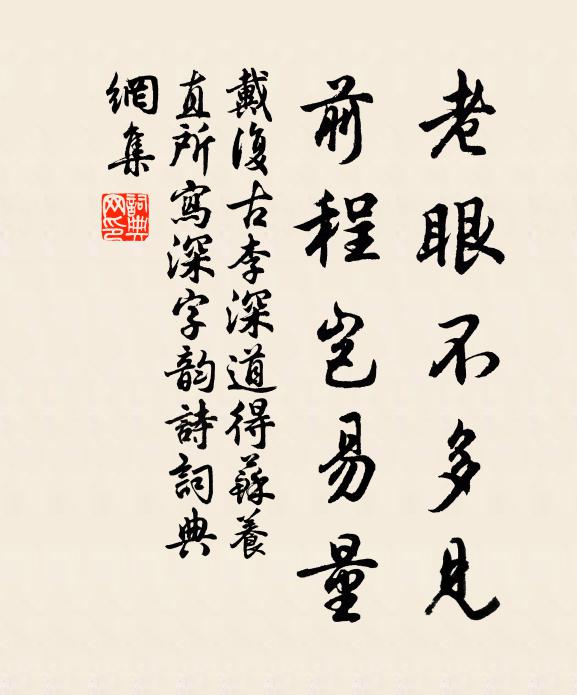 老眼不多見
前程豈易量
戴復古李深道得蘇養
直所寫深字韵詩詞典
網集
詞典
网印